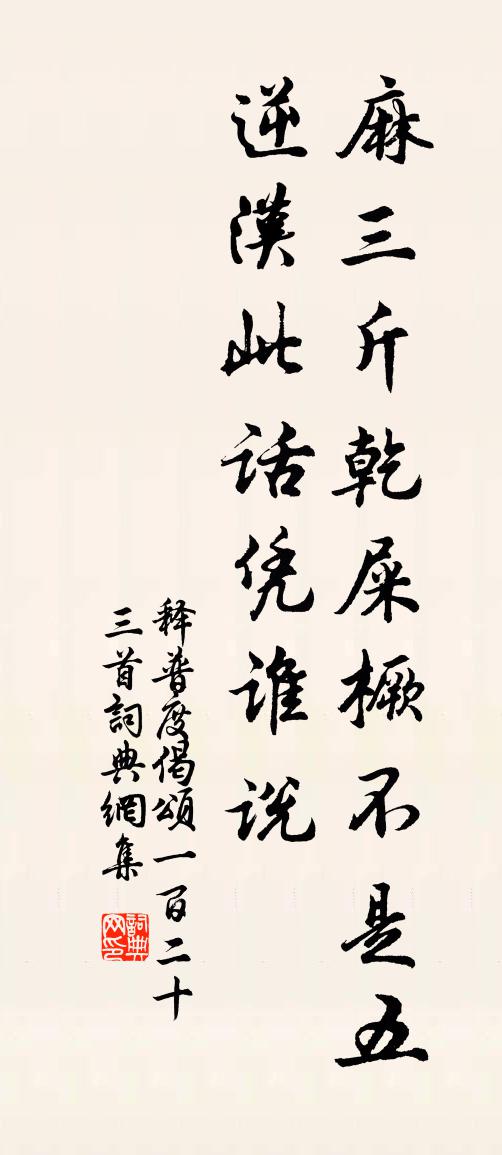 麻三斤乾屎橛不是五
逆漢此话凭谁说
释普度偈頌一百二十
三首詞典網集
詞典
网印